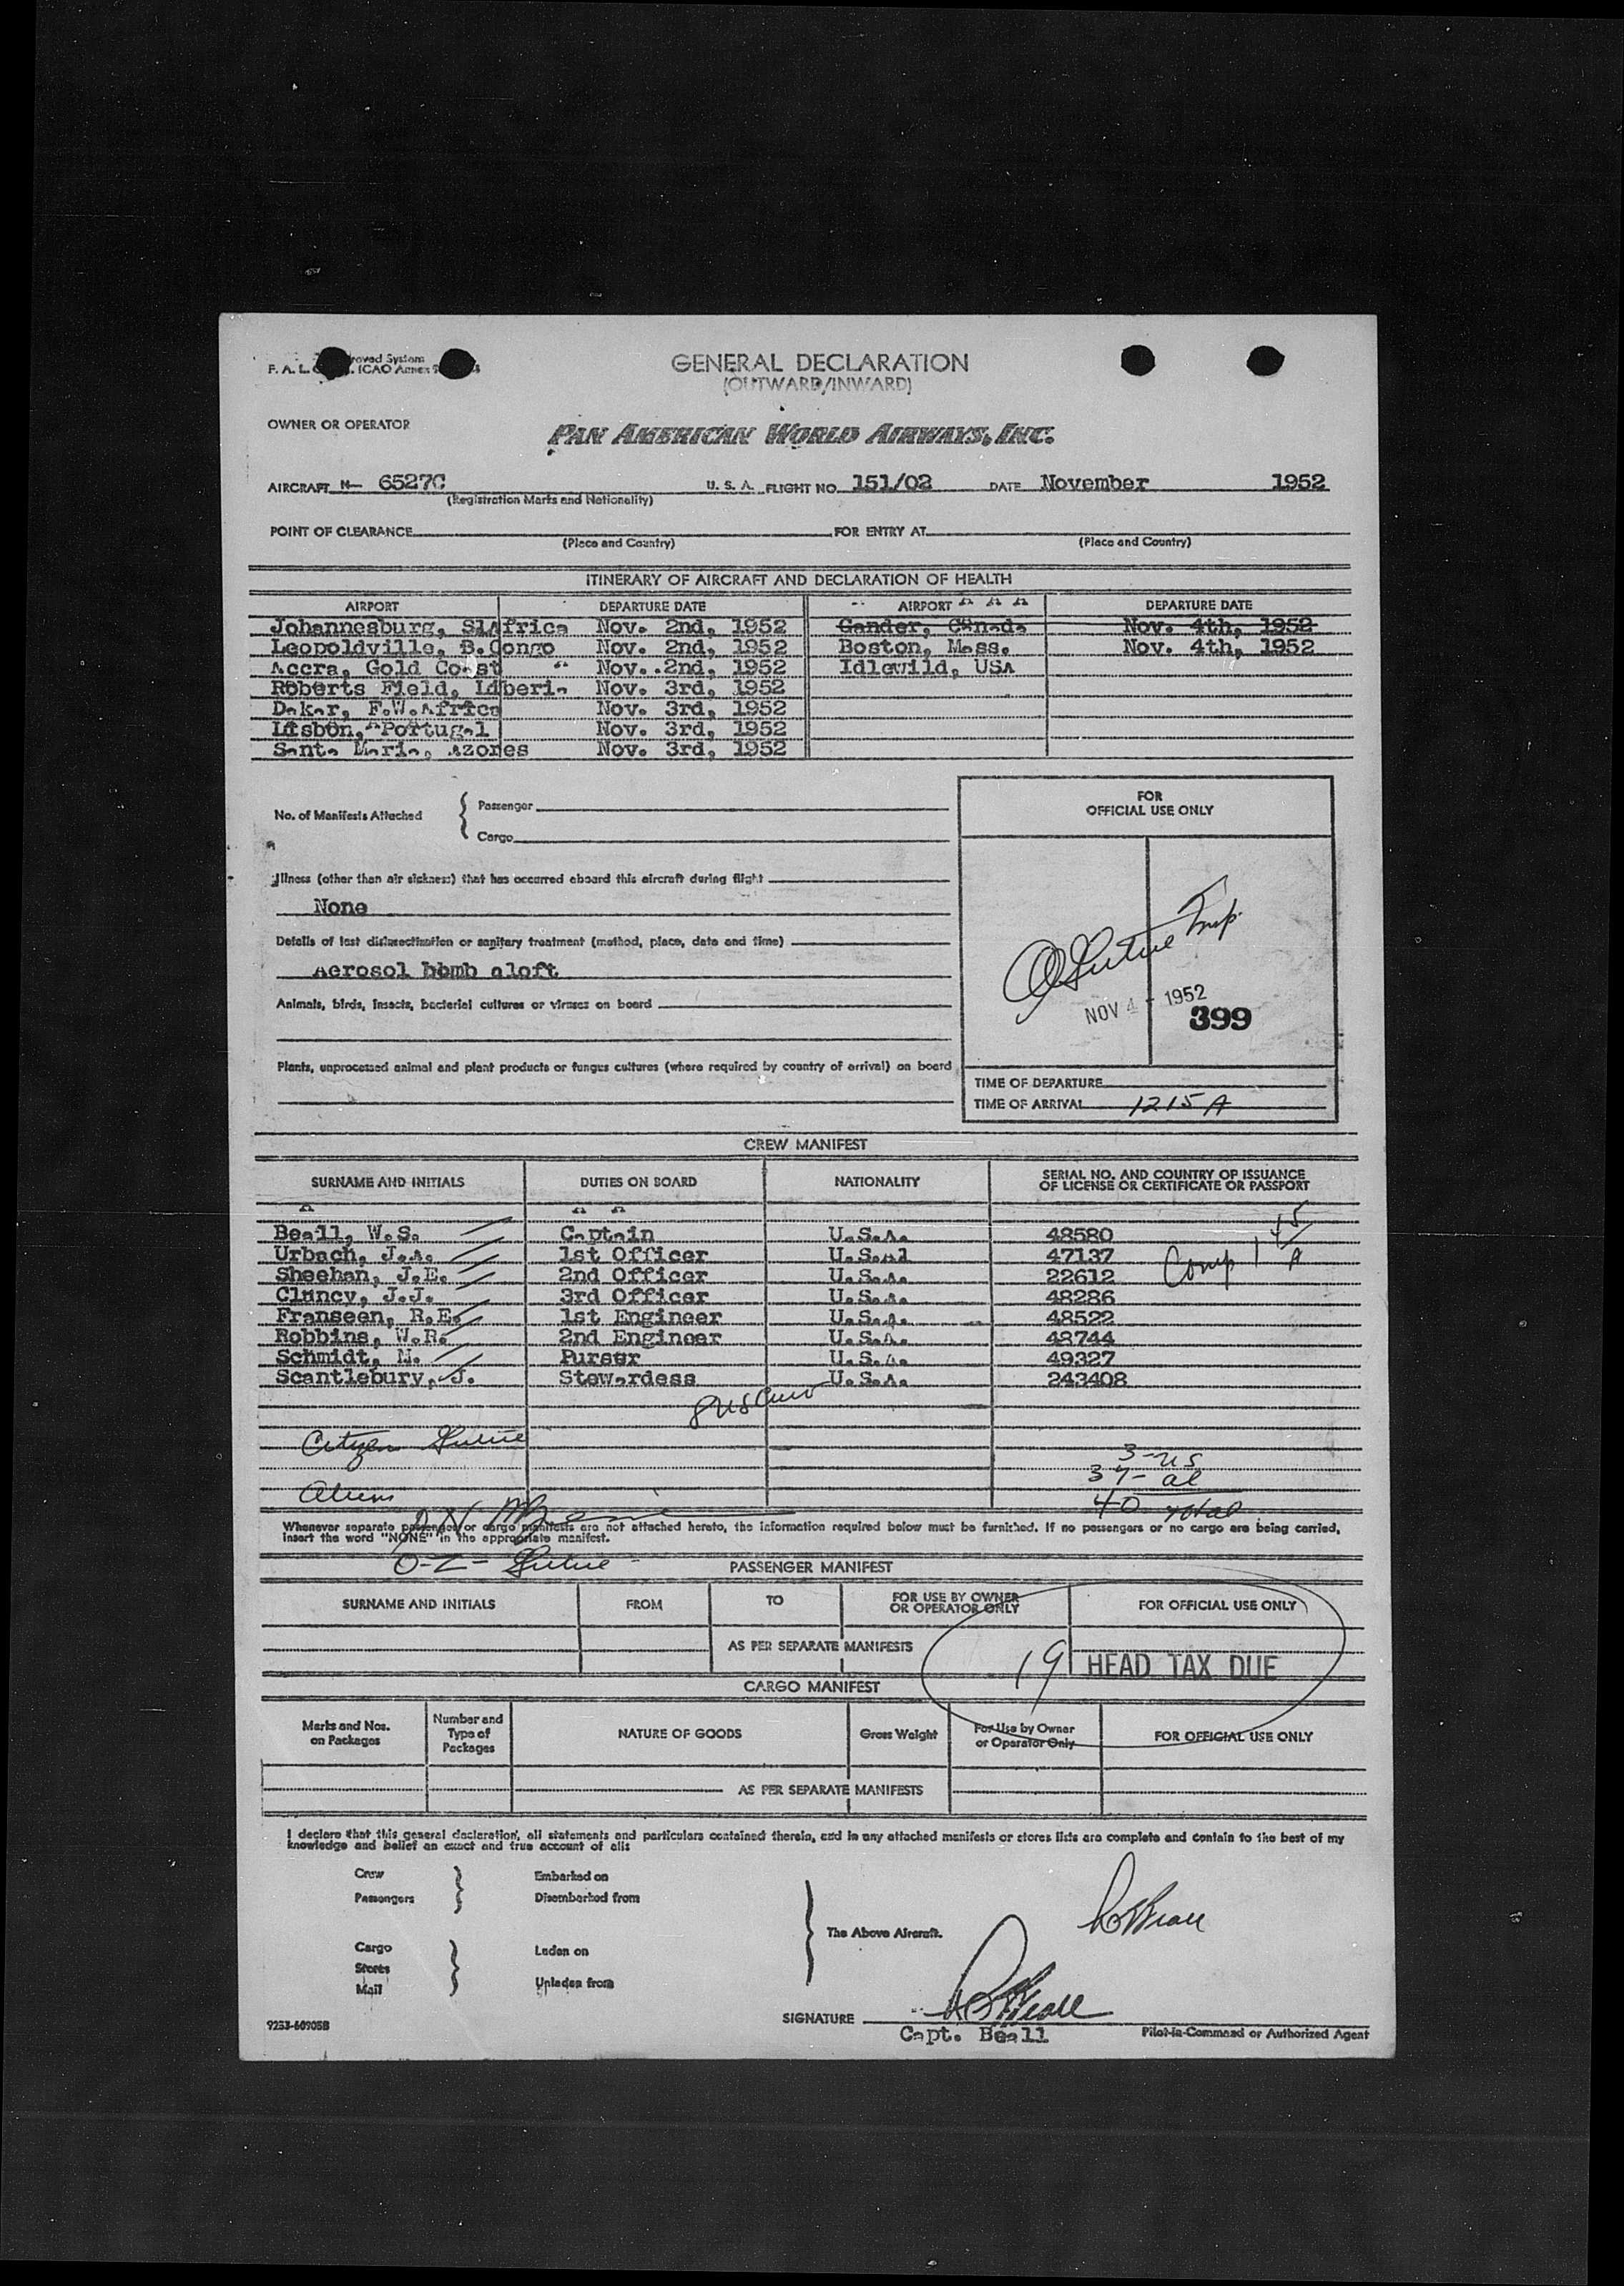 roved System
F. A. L. ICAO Annex 9
GENERAL DECLARATION
(OUTWARD/INWARD)
OWNER OR OPERATOR
PAN AMERICAN WORLD AIRWAYS, INC.
AIRCRAFT N— 6527C U. S. A. FLIGHT NO. 151/02 DATE November 1952
(Registration Marks and Nationality)
POINT OF CLEARANCE FOR ENTRY AT
(Place and Country) (Place and Country)
ITINERARY OF AIRCRAFT AND DECLARATION OF HEALTH
AIRPORT DEPARTURE DATE AIRPORT DEPARTURE DATE
Johannesburg, S.Africa Nov. 2nd, 1952 Gander, Canada Nov. 4th, 1952
Leopoldville, B.Congo Nov. 2nd, 1952 Boston, Mass. Nov. 4th, 1952
Accra, Gold Coast Nov. 2nd, 1952 Idlewild, USA
Roberts Field, Liberia Nov. 3rd, 1952
Dakar, F.W.Africa Nov. 3rd, 1952
Lisbon, Portugal Nov. 3rd, 1952
Santa Maria, Azores Nov. 3rd, 1952
No. of Manifests Attached { Passenger
Cargo
FOR
OFFICIAL USE ONLY
Illness (other than air sickness) that has occurred aboard this aircraft during flight
None
Details of last disinsectization or sanitary treatment (method, place, date and time)
Aerosol bomb aloft
Animals, birds, insects, bacterial cultures or viruses on board
NOV 4 - 1952
399
Plants, unprocessed animal and plant products or fungus cultures (where required by country of arrival) on board
TIME OF DEPARTURE
TIME OF ARRIVAL 1215 A
CREW MANIFEST
SURNAME AND INITIALS DUTIES ON BOARD NATIONALITY SERIAL NO. AND COUNTRY OF ISSUANCE
OF LICENSE OR CERTIFICATE OR PASSPORT
Beall, W.S. Captain U.S.A. 48580
Urbach, J.A. 1st Officer U.S.A 47137 Comp 1 45 A
Sheehan, J.E. 2nd Officer U.S.A. 22612
Clancy, J.J. 3rd Officer U.S.A. 48286
Franseen, R.E. 1st Engineer U.S.A. 48522
Robbins, W.R. 2nd Engineer U.S.A. 48744
Schmidt, N. Purser U.S.A. 49327
Scantlebury, J. Stewardess U.S.A. 243408
8 US Crew
Citizen
3-US
37- al
Aliens
40 total
Whenever separate passenger or cargo manifests are not attached hereto, the information required below must be furnished. If no passengers or no cargo are being carried,
insert the word "NONE" in the appropriate manifest.
PASSENGER MANIFEST
SURNAME AND INITIALS FROM TO FOR USE BY OWNER
OR OPERATOR ONLY FOR OFFICIAL USE ONLY
AS PER SEPARATE MANIFESTS
19 HEAD TAX DUE
CARGO MANIFEST
Marks and Nos.
on Packages Number and
Type of
Packages NATURE OF GOODS Gross Weight For Use by Owner
or Operator Only FOR OFFICIAL USE ONLY
AS PER SEPARATE MANIFESTS
I declare that this general declaration, all statements and particulars contained therein, and in any attached manifests or stores lists are complete and contain to the best of my
knowledge and belief an exact and true account of all:
Crew Embarked on
Passengers Disembarked from
The Above Aircraft.
Cargo Laden on
Stores
Mail Unladen from
SIGNATURE
Capt. Beall Pilot-in-Command or Authorized Agent
9253-60905B